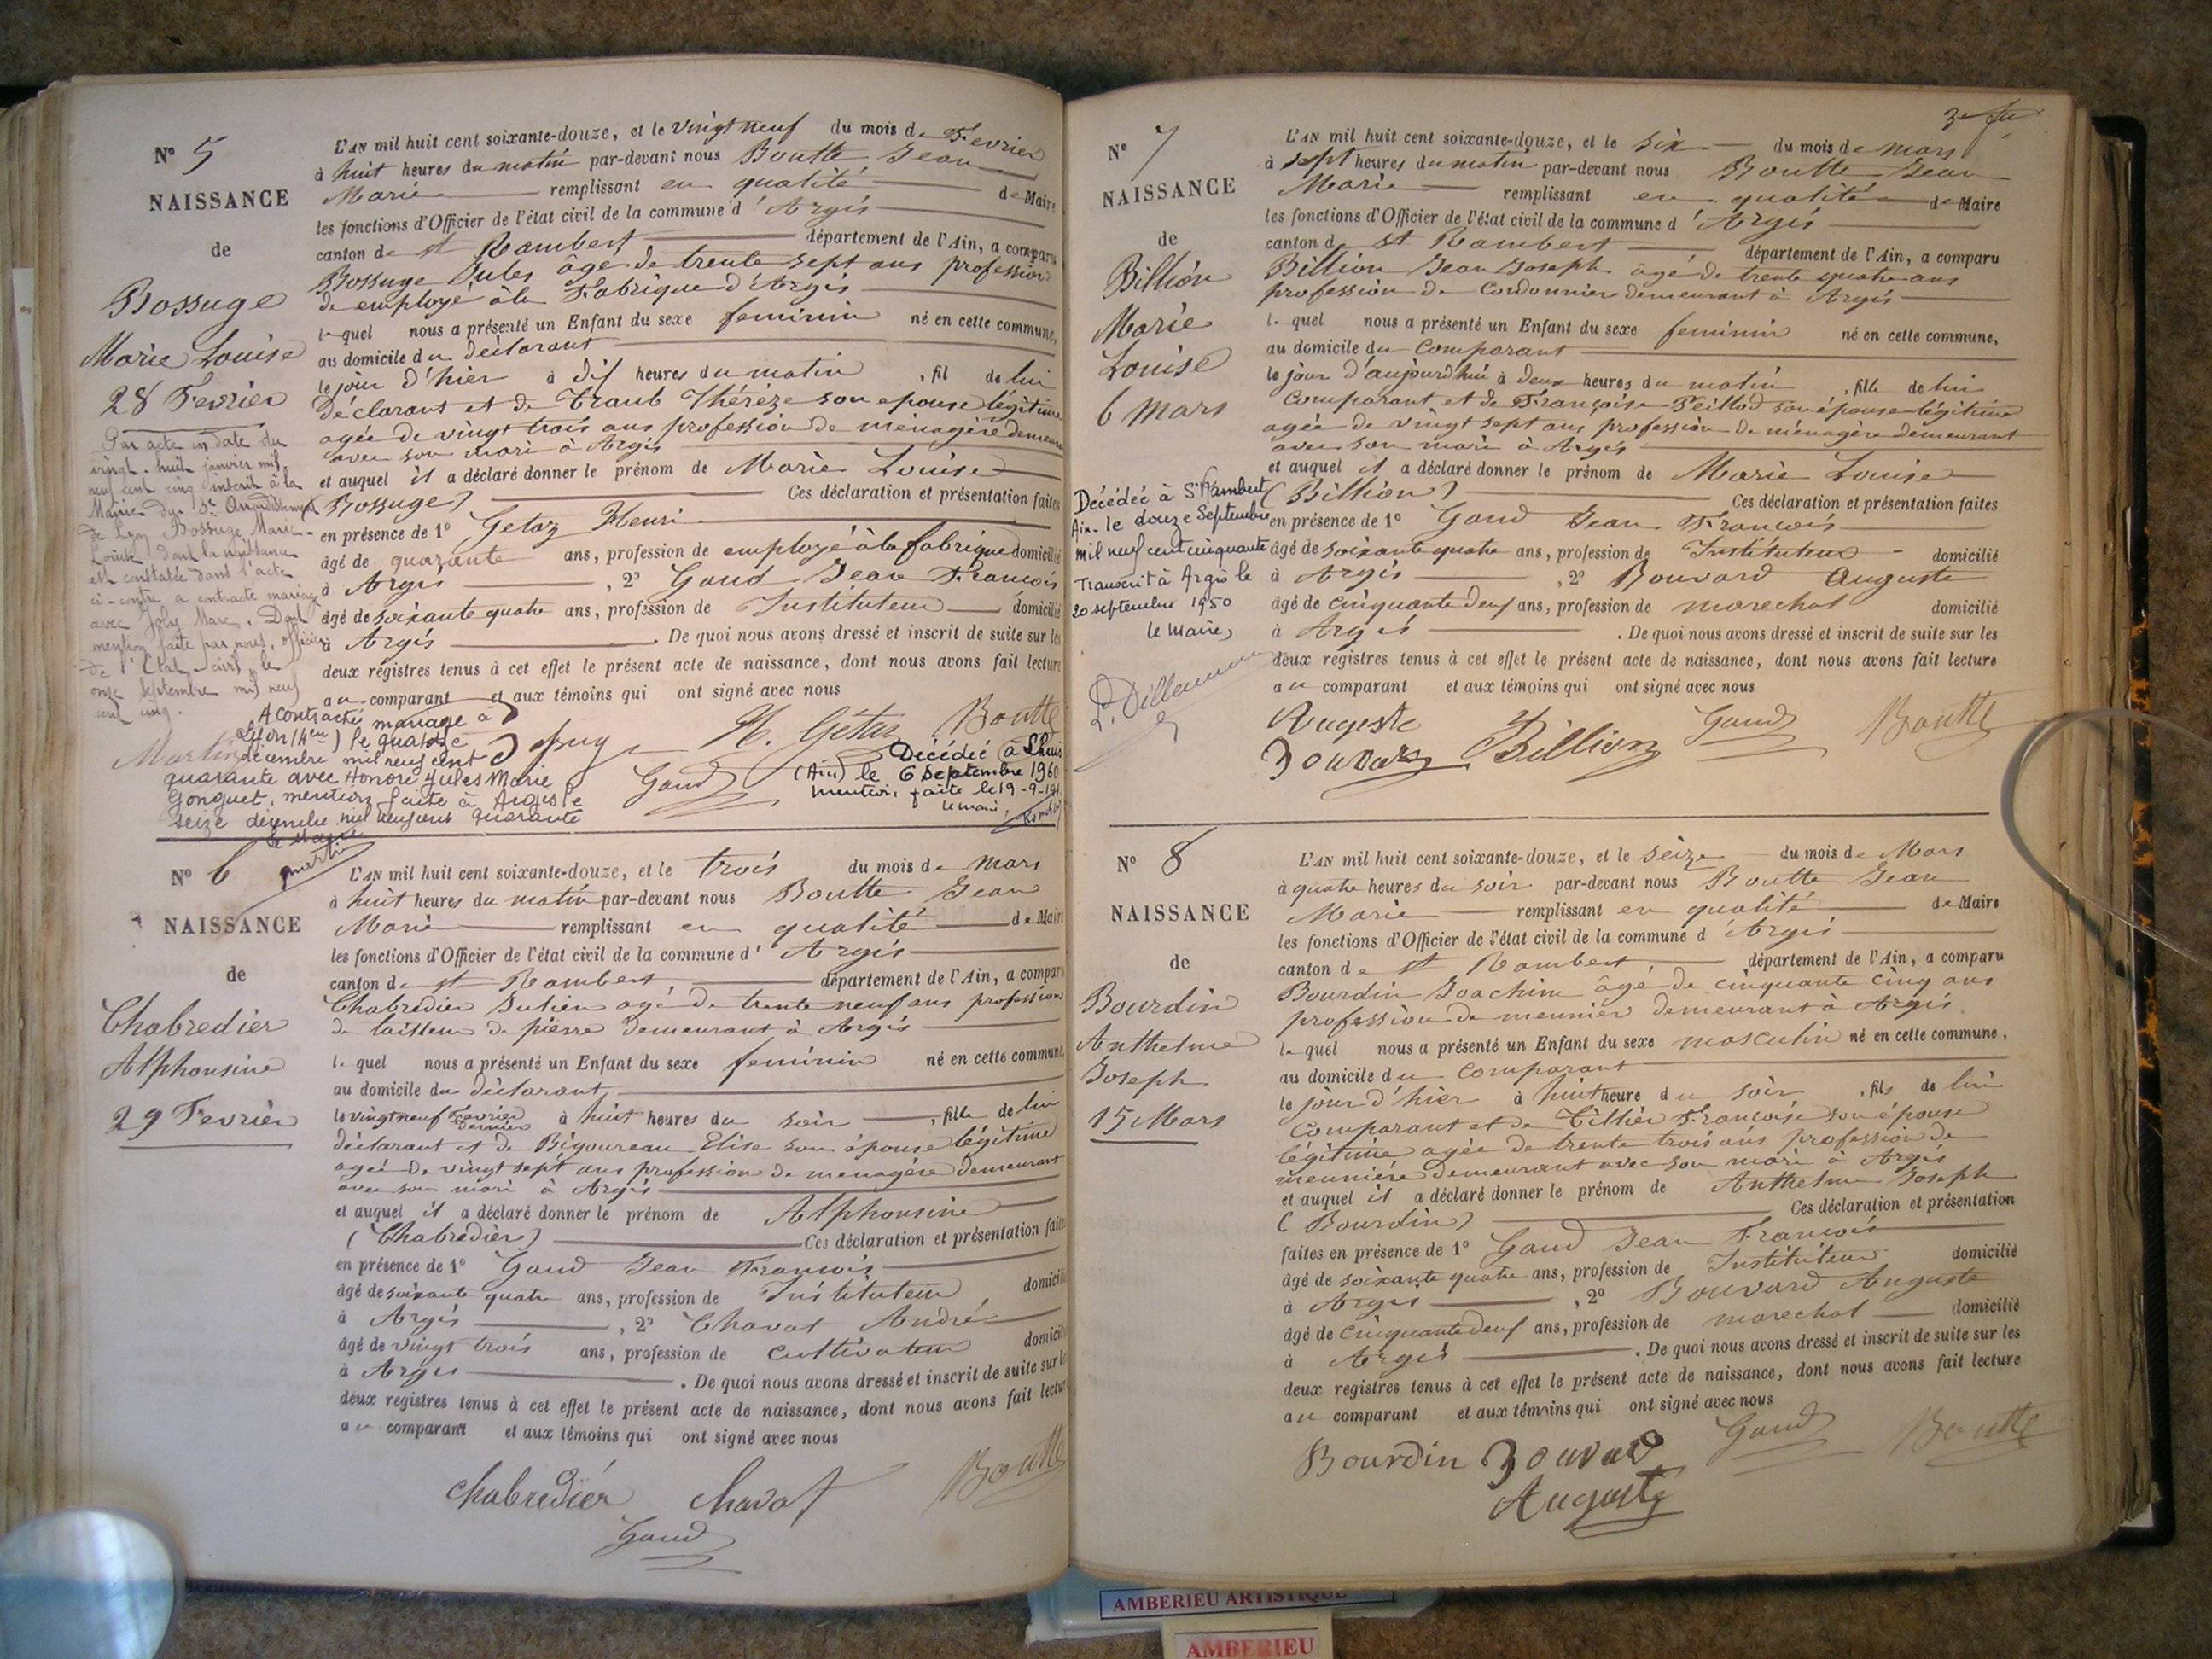 N° 5
NAISSANCE
de
Bossuge
Marie Louise
28 Fevrier
Par acte en date du
vingt-huit janvier mil
neuf cent cinq inscrit à la
Mairie du 5e Arrondissement
de Lyon Bossuge Marie-
Louise dont la naissance
est constatée dans l'acte
ci-contre a contracté mariage
avec Joly Marc. Dont
mention faite par nous, officier
de l'Etat-civil, le
onze septembre mil neuf
cent cinq.
Martin
L'AN mil huit cent soixante-douze, et le vingt neuf du mois de Fevrier
à huit heures du matin par-devant nous Boutte Jean
Marie remplissant en qualité de Maire
les fonctions d'Officier de l'état civil de la commune d'Argis
canton de st Rambert département de l'Ain, a comparu
Bossuge Jules âgé de trente sept ans profession
de employé à la Fabrique d'Argis
lequel nous a présenté un Enfant du sexe feminin né en cette commune,
au domicile du déclarant
le jour d'hier à dix heures du matin, fil de lui
déclarant et de Traub Thérèze son epouse légitime
agée de vingt trois ans profession de ménagère demeurant
avec son mari à Argis
et auquel il a déclaré donner le prénom de Marie Louise
(Bossuge) Ces déclaration et présentation faites
en présence de 1° Getaz Henri
âgé de quarante ans, profession de employé à la fabrique domicilié
à Argis, 2° Gaud Jean Francois
âgé de soixante quatre ans, profession de Instituteur domicilié
à Argis. De quoi nous avons dressé et inscrit de suite sur les
deux registres tenus à cet effet le présent acte de naissance, dont nous avons fait lecture
au comparant et aux témoins qui ont signé avec nous
H. Gétaz Boutte
Gaud
A contracté mariage à
Lyon (4e) le quatorze
décembre mil neuf cent
quarante avec Honoré Jules Marie
Gonguet, mention faite à Argis le
seize décembre mil neuf cent quarante
le Maire
Martin
Décédée à Lhuis
(Ain) le 6 septembre 1960
mention faite le 19-9-1960
le maire,
N° 6
NAISSANCE
de
Chabredier
Alphonsine
29 Fevrier
L'AN mil huit cent soixante-douze, et le trois du mois de mars
à huit heures du matin par-devant nous Boutte Jean
Marie remplissant en qualité de Maire
les fonctions d'Officier de l'état civil de la commune d'Argis
canton de st Rambert département de l'Ain, a comparu
Chabredier Julien agé de trente neuf ans profession
de tailleur de pierre demeurant à Argis
lequel nous a présenté un Enfant du sexe feminin né en cette commune,
au domicile du déclarant
le vingt neuf Fevrier dernier à huit heures du soir, fille de lui
déclarant et de Bigoureau Elise son épouse légitime
agée de vingt sept ans profession de menagère demeurant
avec son mari à Argis
et auquel il a déclaré donner le prénom de Alphonsine
(Chabredier) Ces déclaration et présentation faites
en présence de 1° Gaud Jean Francois
âgé de soixante quatre ans, profession de Instituteur, domicilié
à Argis, 2° Chavat André
âgé de vingt trois ans, profession de cultivateur domicilié
à Argis. De quoi nous avons dressé et inscrit de suite sur les
deux registres tenus à cet effet le présent acte de naissance, dont nous avons fait lecture
au comparant et aux témoins qui ont signé avec nous
chabredier chavat Boutte
Gaud
N° 7
NAISSANCE
de
Billion
Marie
Louise
6 mars
Décédée à St Rambert
Ain - le douze Septembre
mil neuf cent cinquante
Transcrit à Argis le
20 septembre 1950
le Maire,
L'AN mil huit cent soixante-douze, et le six du mois de mars
à sept heures du matin par-devant nous Boutte Jean
Marie remplissant en qualité de Maire
les fonctions d'Officier de l'état civil de la commune d'Argis
canton de st Rambert département de l'Ain, a comparu
Billion Jean Joseph âgé de trente quatre ans
profession de Cordonnier demeurant à Argis
lequel nous a présenté un Enfant du sexe feminin né en cette commune,
au domicile du Comparant
le jour d'aujourd'hui à deux heures du matin, fille de lui
Comparant et de Françoise Teillod son épouse légitime
agée de vingt sept ans profession de ménagère demeurant
avec son mari à Argis
et auquel il a déclaré donner le prénom de Marie Louise
(Billion) Ces déclaration et présentation faites
en présence de 1° Gaud Jean Francois
âgé de soixante quatre ans, profession de Instituteur domicilié
à Argis, 2° Bouvard Auguste
âgé de cinquante deux ans, profession de marechal domicilié
à Argis. De quoi nous avons dressé et inscrit de suite sur les
deux registres tenus à cet effet le présent acte de naissance, dont nous avons fait lecture
au comparant et aux témoins qui ont signé avec nous
Auguste
Bouvard Billion Gaud Boutte
N° 8
NAISSANCE
de
Bourdin
Anthelme
Joseph
15 Mars
L'AN mil huit cent soixante-douze, et le seize du mois de Mars
à quatre heures du soir par-devant nous Boutte Jean
Marie remplissant en qualité de Maire
les fonctions d'Officier de l'état civil de la commune d'Argis
canton de st Rambert département de l'Ain, a comparu
Bourdin Joachim âgé de cinquante cinq ans
profession de meunier demeurant à Argis
lequel nous a présenté un Enfant du sexe masculin né en cette commune,
au domicile du comparant
le jour d'hier à huit heure du soir, fils de lui
Comparant et de Tillier Francoise son épouse
légitime agée de trente trois ans profession de
meunière demeurant avec son mari à Argis
et auquel il a déclaré donner le prénom de Anthelme Joseph
(Bourdin) Ces déclaration et présentation
faites en présence de 1° Gaud Jean Francois
âgé de soixante quatre ans, profession de Instituteur domicilié
à Argis, 2° Bouvard Auguste
âgé de cinquante deux ans, profession de marechal domicilié
à Argis. De quoi nous avons dressé et inscrit de suite sur les
deux registres tenus à cet effet le présent acte de naissance, dont nous avons fait lecture
au comparant et aux témoins qui ont signé avec nous
Bourdin Bouvard Gaud Boutte
Auguste
AMBERIEU ARTISTIQUE
AMBERIEU